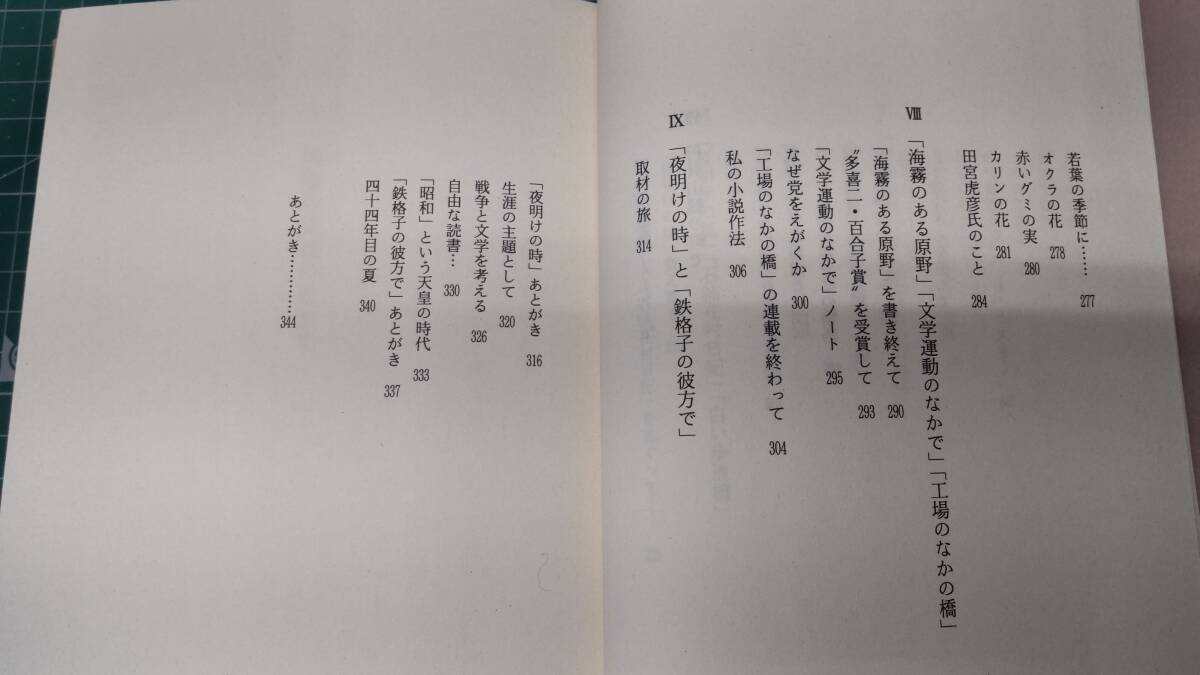 若葉の季節に…… 277
オクラの花 278
赤いグミの実 280
カリンの花 281
田宮虎彦氏のこと 284
Ⅷ 「海霧のある原野」「文学運動のなかで」「工場のなかの橋」
「海霧のある原野」を書き終えて 290
〝多喜二・百合子賞〟を受賞して 293
「文学運動のなかで」ノート 295
なぜ党をえがくか 300
「工場のなかの橋」の連載を終わって 304
私の小説作法 306
Ⅸ 「夜明けの時」と「鉄格子の彼方で」
取材の旅 314
「夜明けの時」あとがき 316
生涯の主題として 320
戦争と文学を考える 326
自由な読書… 330
「昭和」という天皇の時代 333
「鉄格子の彼方で」あとがき 337
四十四年目の夏 340
あとがき………… 344